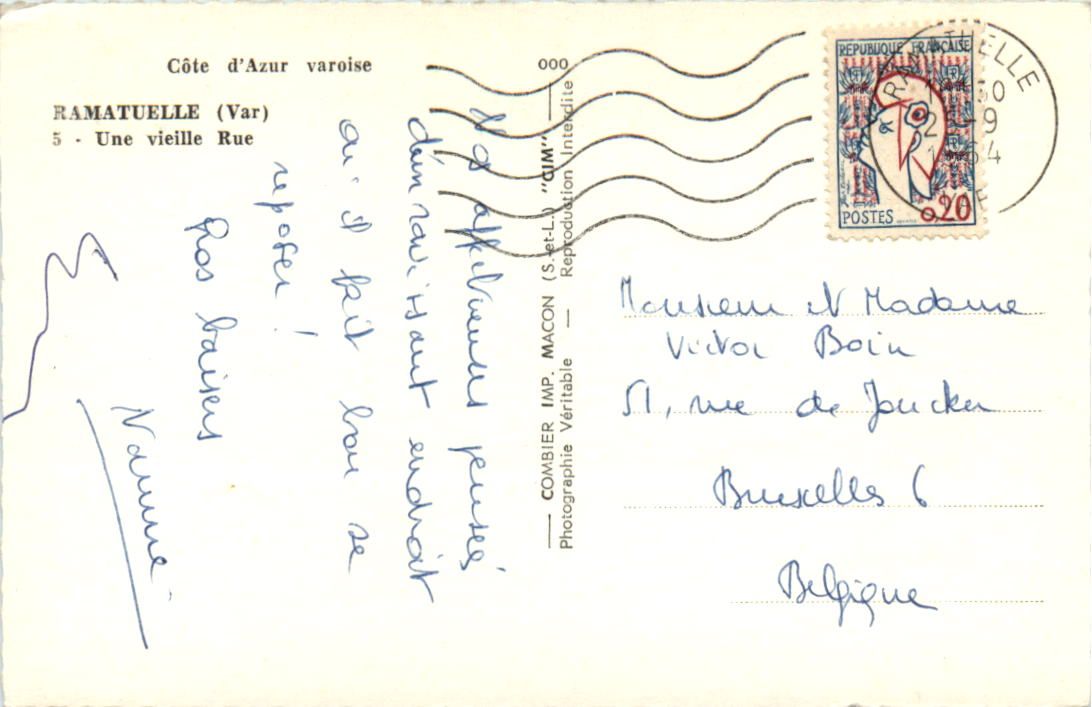 Côte d'Azur varoise
RAMATUELLE (Var)
5 - Une vieille Rue
Nos affectueuses pensées
d'un ravissant endroit
où il fait bon se
reposer !
Gros baisers
— COMBIER IMP. MACON (S.-et-L.) "CIM" — 000
Photographie Véritable — Reproduction Interdite
REPUBLIQUE FRANÇAISE
POSTES 0,20
RAMATUELLE
Monsieur et Madame
Victor Boin
51, rue de Joncker
Bruxelles 6
Belgique